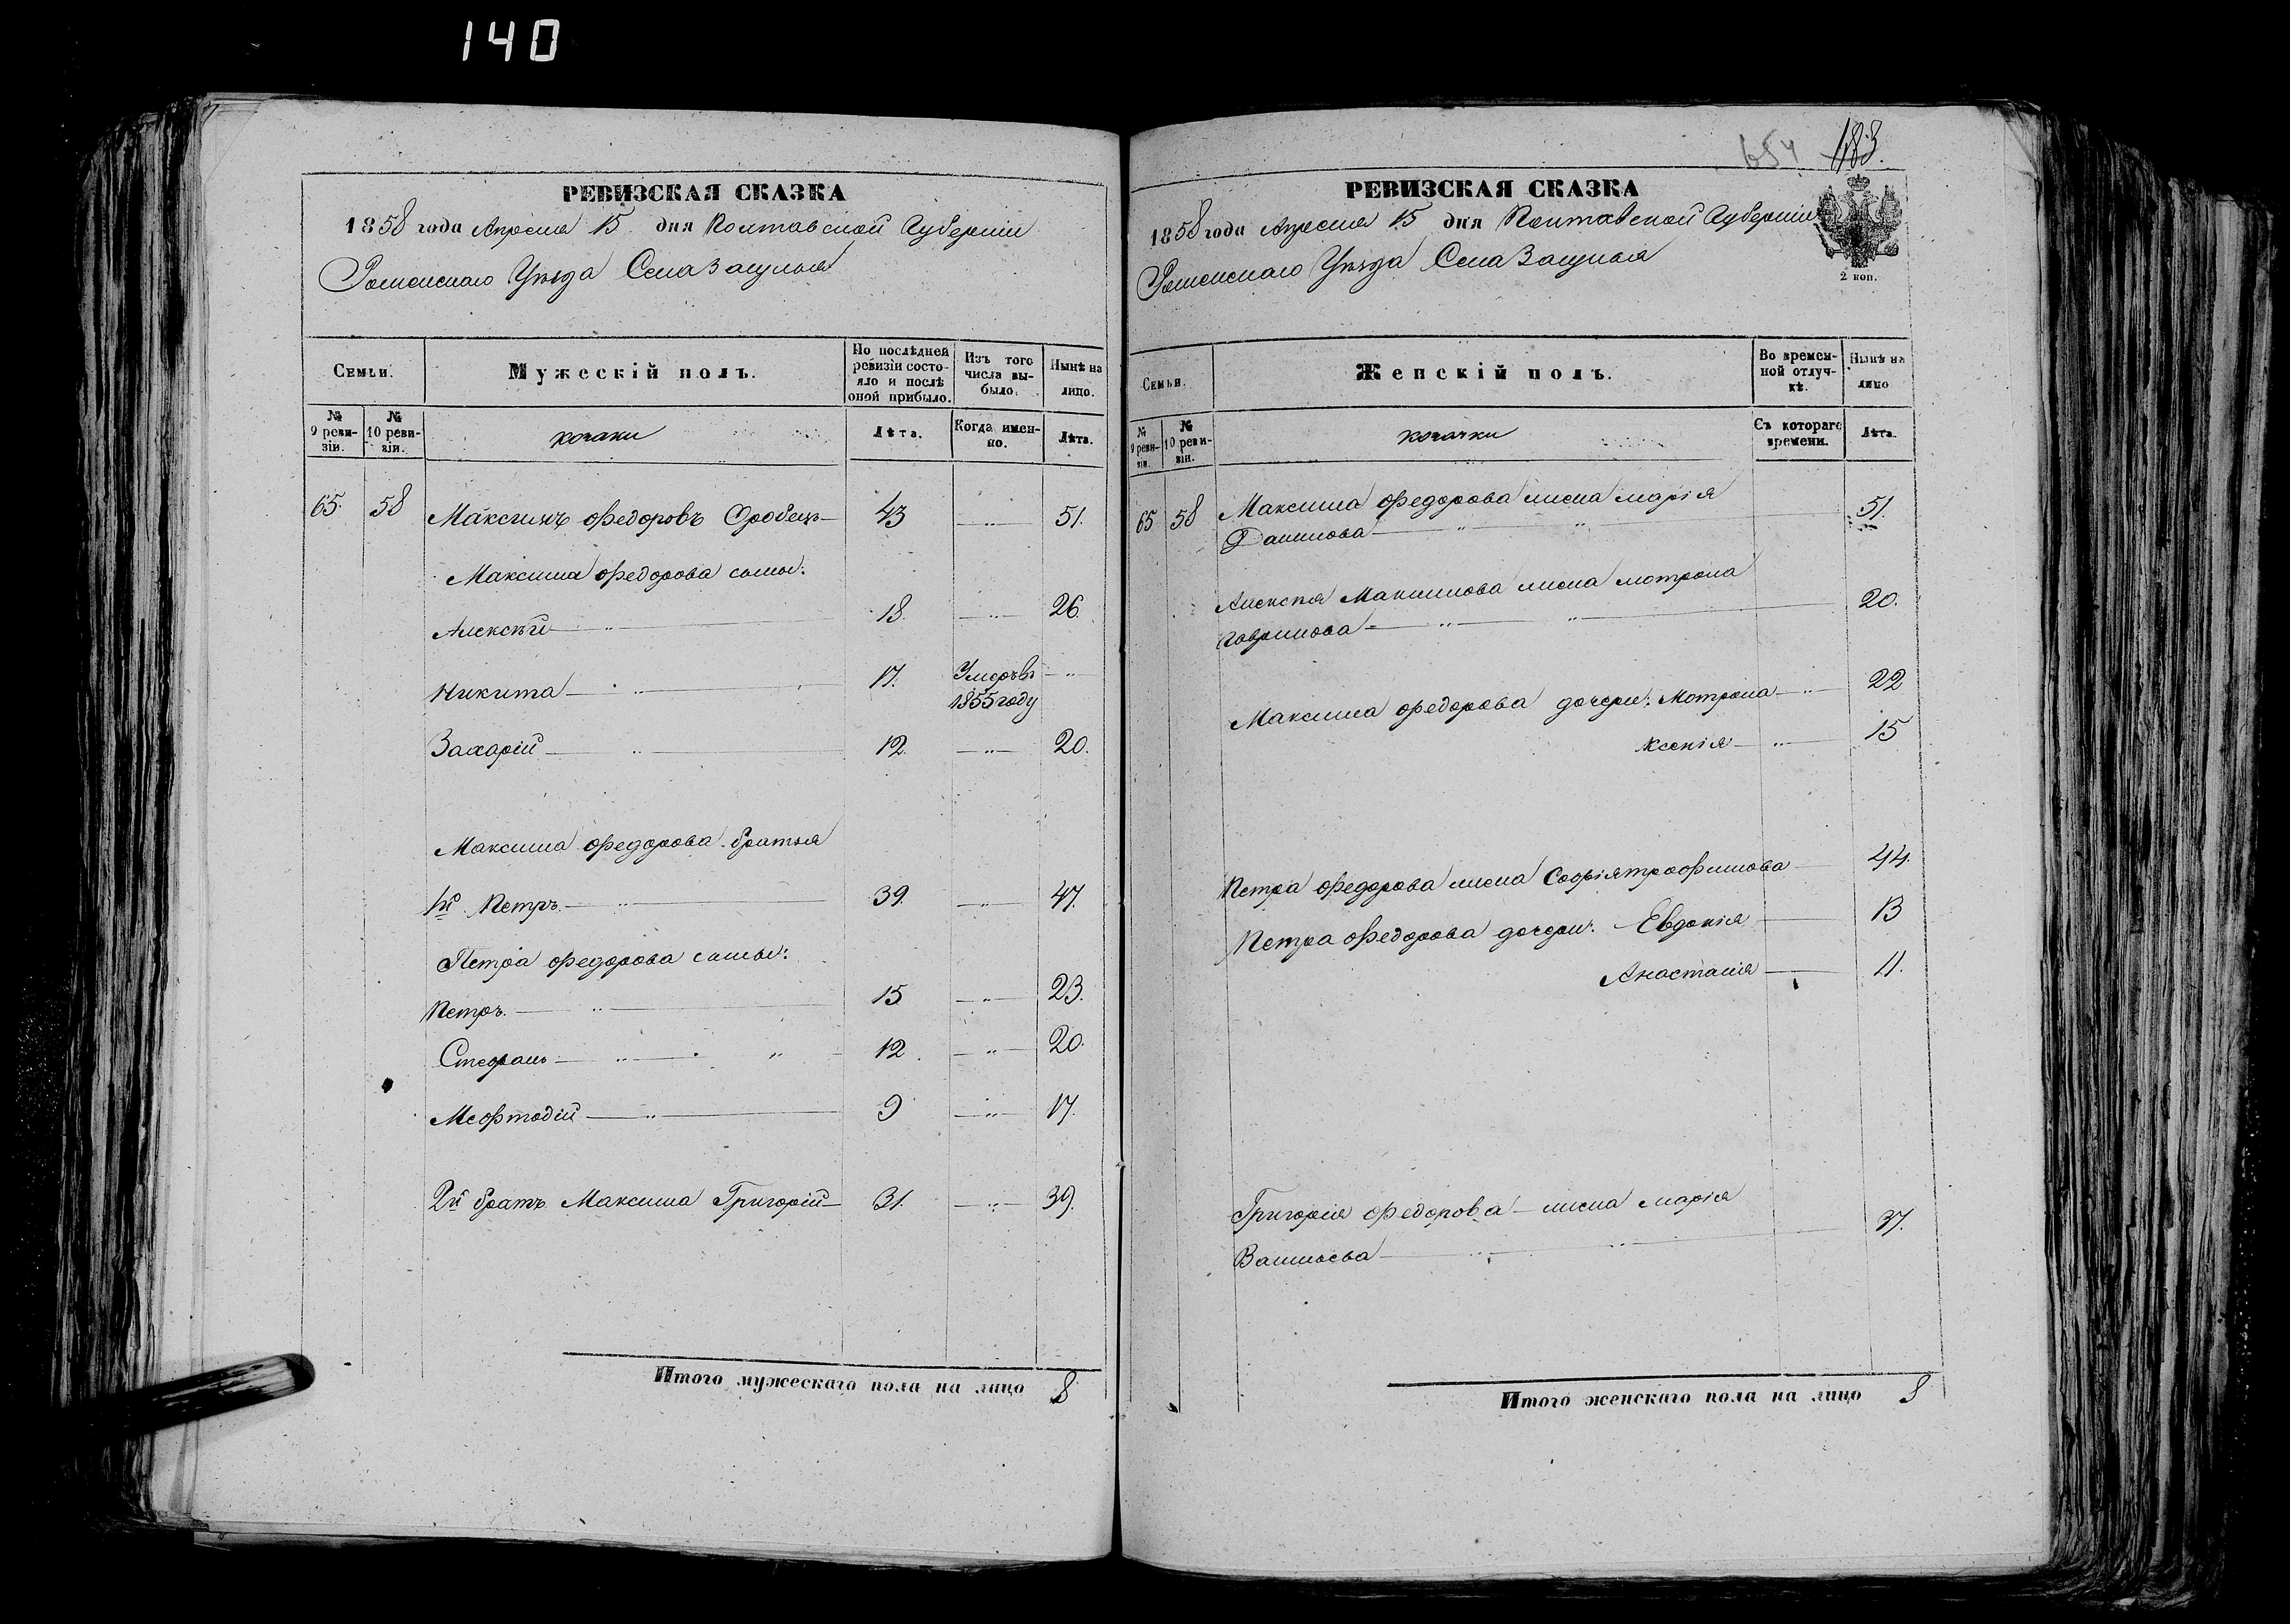 140
РЕВИЗСКАЯ СКАЗКА
1858 года Апреля 15 дня Полтавской Губерніи
Роменскаго Уѣзда Села Засулья
Семьи.
Мужескій полъ.
По послѣдней ревизіи состояло и послѣ оной прибыло.
Изъ того числа выбыло.
Нынѣ на лицо.
№ 9 ревизіи.
№ 10 ревизіи.
козаки
Лѣта.
Когда именно.
Лѣта.
65. 58 Максимъ Федоровъ 43 — " — 51.
Максима Федорова сыны:
Алексѣй — " — 18. — " — 26.
Никита — " — 17. Умеръ въ 1855 году — "
Захарій — " — 12. — " — 20.
Максима Федорова братья
1й Петръ — " — 39. — " — 47.
Петра Федорова сыны:
Петръ. — " — 15 — " — 23.
Стефанъ — " — " — 12. — " — 20.
Мефтодій — " — 9 — " — 17.
2й братъ Максима Григорій — 31. — " — 39.
Итого мужескаго пола на лицо 8
654 183.
РЕВИЗСКАЯ СКАЗКА
1858 года Апреля 15 дня Полтавской Губерніи
2 коп.
Роменскаго Уѣзда Села Засулья
Семьи.
Женскій полъ.
Во временной отлучкѣ.
Нынѣ на лицо
№ 9 ревизіи.
№ 10 ревизіи.
козачки
Съ котораго времени.
Лѣта.
65 58 Максима Федорова жена марія
Данилова — " " 51.
Алексѣя Максимова жена мотрона
Гаврилова — " " 20.
Максима Федорова дочери: Мотрона — " — 22
Ксенія — " — 15
Петра Федорова жена Софія трофимова — 44.
Петра Федорова дочери: Евдокія — 13
Анастасія — 11.
Григорія Федорова — жена марія
Васильева — " " 37.
Итого женскаго пола на лицо 8